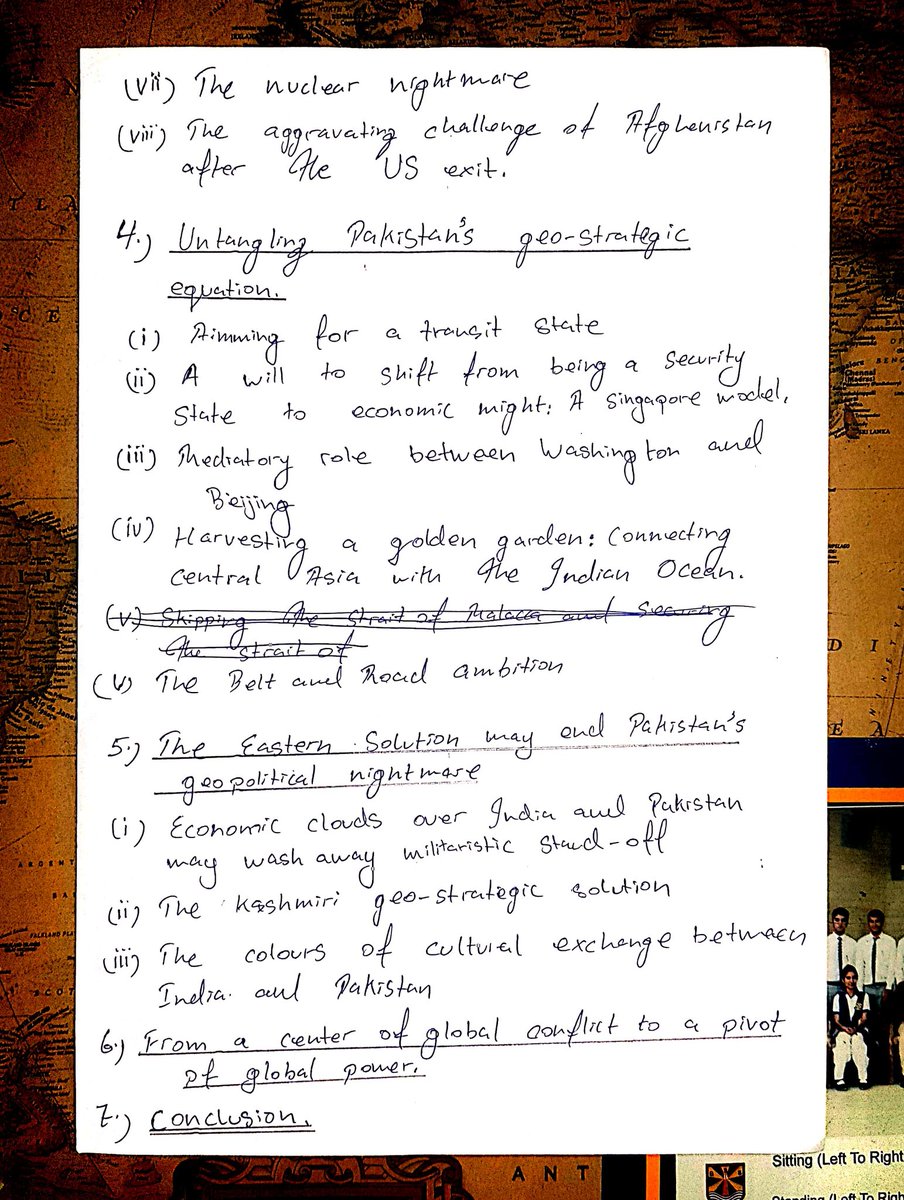 (vii) The nuclear nightmare
(viii) The aggravating challenge of Afghenistan
after the US exit.
4.) Untangling Pakistan's geo-strategic
equation.
(i) Aimming for a transit state
(ii) A will to shift from being a security
state to economic might: A Singapore model.
(iii) Mediatory role between Washington and
Beijing
(iv) Harvesting a golden garden: Connecting
central Asia with the Indian Ocean.
(v) Skipping the strait of Malacca and Securing
the strait of
(v) The Belt and Road ambition
5.) The Eastern Solution may end Pakistan's
geopolitical nightmare
(i) Economic clouds over India and Pakistan
may wash away militaristic stand-off
(ii) The Kashmiri geo-strategic solution
(iii) The colours of cultural exchange between
India and Pakistan
6.) From a center of global conflict to a pivot
of global power.
7.) Conclusion.
Sitting (Left To Right
ANT